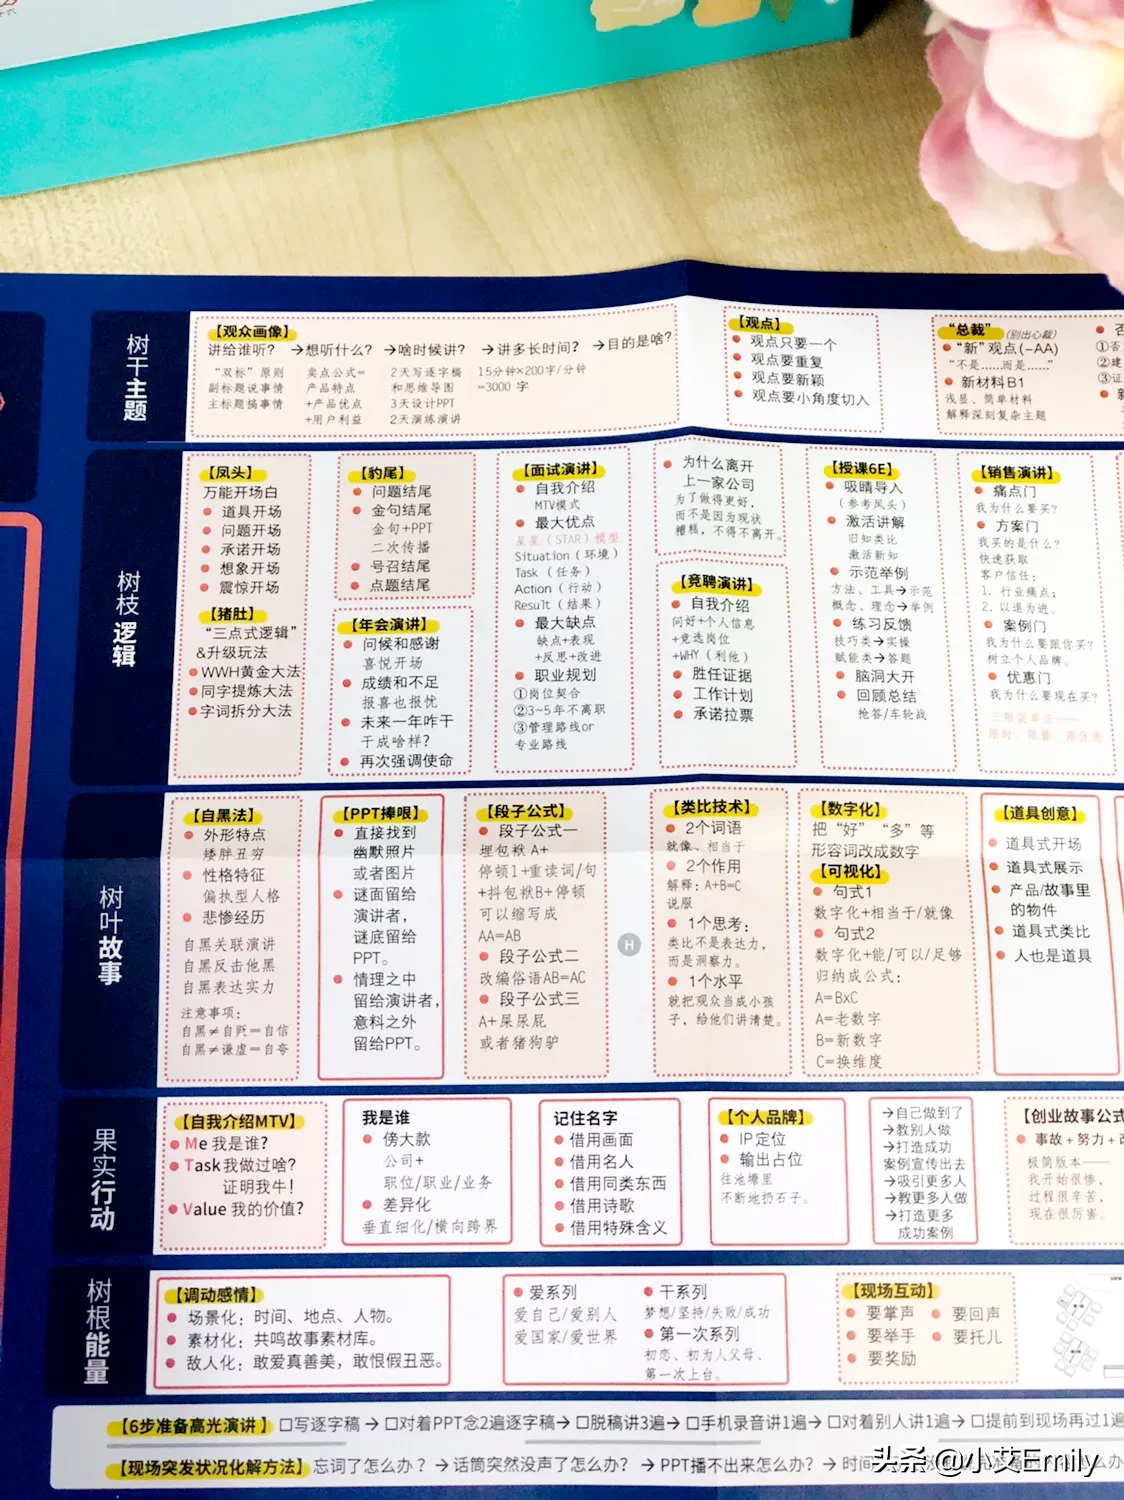 树干主题
【观众画像】
讲给谁听？ →想听什么？ →啥时候讲？ →讲多长时间？ →目的是啥？
“双标”原则
副标题说事情
主标题搞事情
卖点公式=
产品特点
+产品优点
+用户利益
2天写逐字稿
和思维导图
3天设计PPT
2天演练演讲
15分钟×200字/分钟
=3000 字
【观点】
观点只要一个
观点要重复
观点要新颖
观点要小角度切入
“总裁” (别出心裁)
“新”观点(-AA)
“不是……而是……”
新材料B1
浅显、简单材料
解释深刻复杂主题
树枝逻辑
【凤头】
万能开场白
道具开场
问题开场
承诺开场
想象开场
震惊开场
【猪肚】
“三点式逻辑”
&升级玩法
WWH黄金大法
同字提炼大法
字词拆分大法
【豹尾】
问题结尾
金句结尾
金句+PPT
二次传播
号召结尾
点题结尾
【年会演讲】
问候和感谢
喜悦开场
成绩和不足
报喜也报忧
未来一年咋干
干成啥样？
再次强调使命
【面试演讲】
自我介绍
MTV模式
最大优点
星星（STAR）模型
Situation（环境）
Task（任务）
Action（行动）
Result（结果）
最大缺点
缺点+表现
+反思+改进
职业规划
①岗位契合
②3~5年不离职
③管理路线or
专业路线
为什么离开
上一家公司
为了做得更好，
而不是因为现状
糟糕，不得不离开。
【竞聘演讲】
自我介绍
问好+个人信息
+竞选岗位
+WHY（利他）
胜任证据
工作计划
承诺拉票
【授课6E】
吸睛导入
（参考凤头）
激活讲解
旧知类比
激活新知
示范举例
方法、工具→示范
概念、理念→举例
练习反馈
技巧类→实操
赋能类→答题
脑洞大开
回顾总结
抢答/车轮战
【销售演讲】
痛点门
我为什么要买？
方案门
我买的是什么？
快速获取
客户信任：
1. 行业痛点；
2. 以退为进。
案例门
我为什么要跟你买？
树立个人品牌。
优惠门
我为什么要现在买？
三限促单法——
限时、限量、限优惠
树叶故事
【自黑法】
外形特点
矮胖丑穷
性格特征
偏执型人格
悲惨经历
自黑关联演讲
自黑反击他黑
自黑表达实力
注意事项：
自黑≠自贬=自信
自黑≠谦虚=自夸
【PPT捧哏】
直接找到
幽默照片
或者图片
谜面留给
演讲者，
谜底留给
PPT。
情理之中
留给演讲者，
意料之外
留给PPT。
【段子公式】
段子公式一
埋包袱 A+
停顿1+重读词/句
+抖包袱B+停顿
可以缩写成
AA=AB
段子公式二
改编俗语AB=AC
段子公式三
A+屎尿屁
或者猪狗驴
H
【类比技术】
2个词语
就像、相当于
2个作用
解释：A+B=C
说服
1个思考：
类比不是表达力，
而是洞察力。
1个水平
就把观众当成小孩
子，给他们讲清楚。
【数字化】
把“好”“多”等
形容词改成数字
【可视化】
句式1
数字化+相当于/就像
句式2
数字化+能/可以/足够
归纳成公式：
A=BxC
A=老数字
B=新数字
C=换维度
【道具创意】
道具式开场
道具式展示
产品/故事里
的物件
道具式类比
人也是道具
果实行动
【自我介绍MTV】
Me 我是谁？
Task我做过啥？
证明我牛！
Value 我的价值？
我是谁
傍大款
公司+
职位/职业/业务
差异化
垂直细化/横向跨界
记住名字
借用画面
借用名人
借用同类东西
借用诗歌
借用特殊含义
【个人品牌】
IP定位
输出占位
往池塘里
不断地扔石子。
→自己做到了
→教别人做
→打造成功
案例宣传出去
→吸引更多人
→教更多人做
→打造更多
成功案例
【创业故事公式
事故+努力+
极简版本——
我开始很惨，
过程很辛苦，
现在很厉害。
树根能量
【调动感情】
场景化：时间、地点、人物。
素材化：共鸣故事素材库。
敌人化：敢爱真善美，敢恨假丑恶。
爱系列
爱自己/爱别人
爱国家/爱世界
干系列
梦想/坚持/失败/成功
第一次系列
初恋、初为人父母、
第一次上台。
【现场互动】
要掌声
要举手
要奖励
要回声
要托儿
【6步准备高光演讲】□写逐字稿→□对着PPT念2遍逐字稿→□脱稿讲3遍→□手机录音讲1遍→□对着别人讲1遍→□提前到现场再过1遍
【现场突发状况化解方法】忘词了怎么办？→话筒突然没声了怎么办？→PPT播不出来怎么办？→时间
头条@小艾Emily